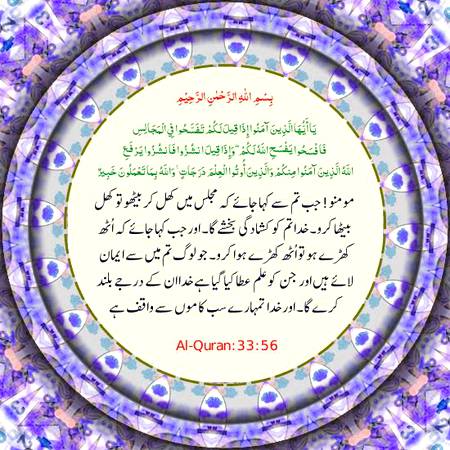 بِسْمِ اللهِ الرَّحْمٰنِ الرَّحِيْمِ
يَا أَيُّهَا الَّذِينَ آمَنُوا إِذَا قِيلَ لَكُمْ تَفَسَّحُوا فِي الْمَجَالِسِ
فَافْسَحُوا يَفْسَحِ اللَّهُ لَكُمْ ۖ وَإِذَا قِيلَ انشُزُوا فَانشُزُوا يَرْفَعِ
اللَّهُ الَّذِينَ آمَنُوا مِنكُمْ وَالَّذِينَ أُوتُوا الْعِلْمَ دَرَجَاتٍ ۚ وَاللَّهُ بِمَا تَعْمَلُونَ خَبِيرٌ
مومنو! جب تم سے کہا جائے کہ مجلس میں کھل کر بیٹھو تو کھل
بیٹھا کرو۔ خدا تم کو کشادگی بخشے گا۔ اور جب کہا جائے کہ اُٹھ
کھڑے ہو تو اُٹھ کھڑے ہوا کرو۔ جو لوگ تم میں سے ایمان
لائے ہیں اور جن کو علم عطا کیا گیا ہے خدا ان کے درجے بلند
کرے گا۔ اور خدا تمہارے سب کاموں سے واقف ہے
Al-Quran: 33:56